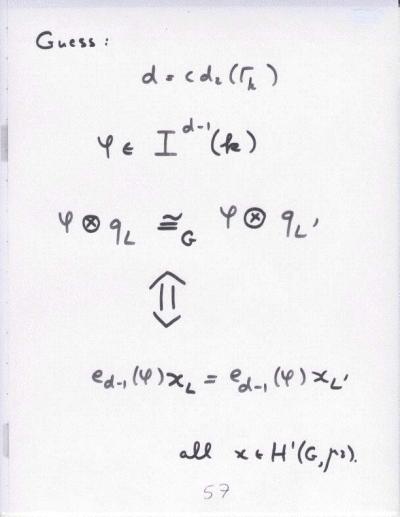 Guess :
d = cd₂(Γₖ)
φ ∈ I^{d-1}(k)
φ ⊗ q_L ≅_G φ ⊗ q_L'
⇕
e_{d-1}(φ) x_L = e_{d-1}(φ) x_L'
all x ∈ H¹(G, μ₂).
57